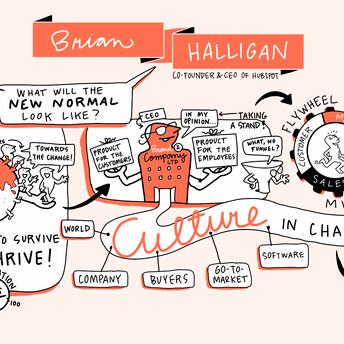 Brian
HALLIGAN
CO-FOUNDER & CEO OF HUBSPOT
WHAT WILL THE
NEW NORMAL
LOOK LIKE?
CEO
IN MY
OPINION...
TAKING
A STAND!
TOWARDS
THE CHANGE!
PRODUCT
FOR THE
CUSTOMERS
Company
LTD
PRODUCT
FOR THE
EMPLOYEES
WHAT, NO
FUNNEL?
FLYWHEEL
CUSTOMER
SALES
Culture
IN CHA
TO SURVIVE
HRIVE!
WORLD
COMPANY
BUYERS
GO-TO-
MARKET
SOFTWARE
/100